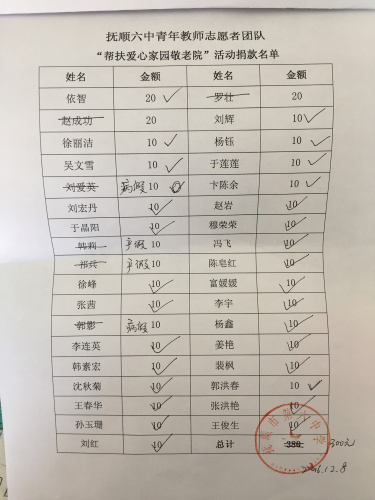 抚顺六中青年教师志愿者团队
“帮扶爱心家园敬老院”活动捐款名单
姓名 金额 姓名 金额
依智 20 罗壮 20
赵成功 20 刘辉 10
徐丽洁 10 杨钰 10
吴文雪 10 于莲莲 10
刘爱英 病假 10 卞陈余 10
刘宏丹 10 赵岩 10
于晶阳 10 穆荣荣 10
韩莉 产假 10 冯飞 10
祁兵 事假 10 陈皂红 10
徐峰 10 富媛媛 10
张茜 10 李宇 10
郭影 病假 10 杨鑫 10
李连英 10 姜艳 10
韩素宏 10 裴枫 10
沈秋菊 10 郭洪春 10
王春华 10 张洪艳 10
孙玉珊 10 王俊生 10
刘红 10 总计 380 300元
抚顺市第六中学
2016.12.8